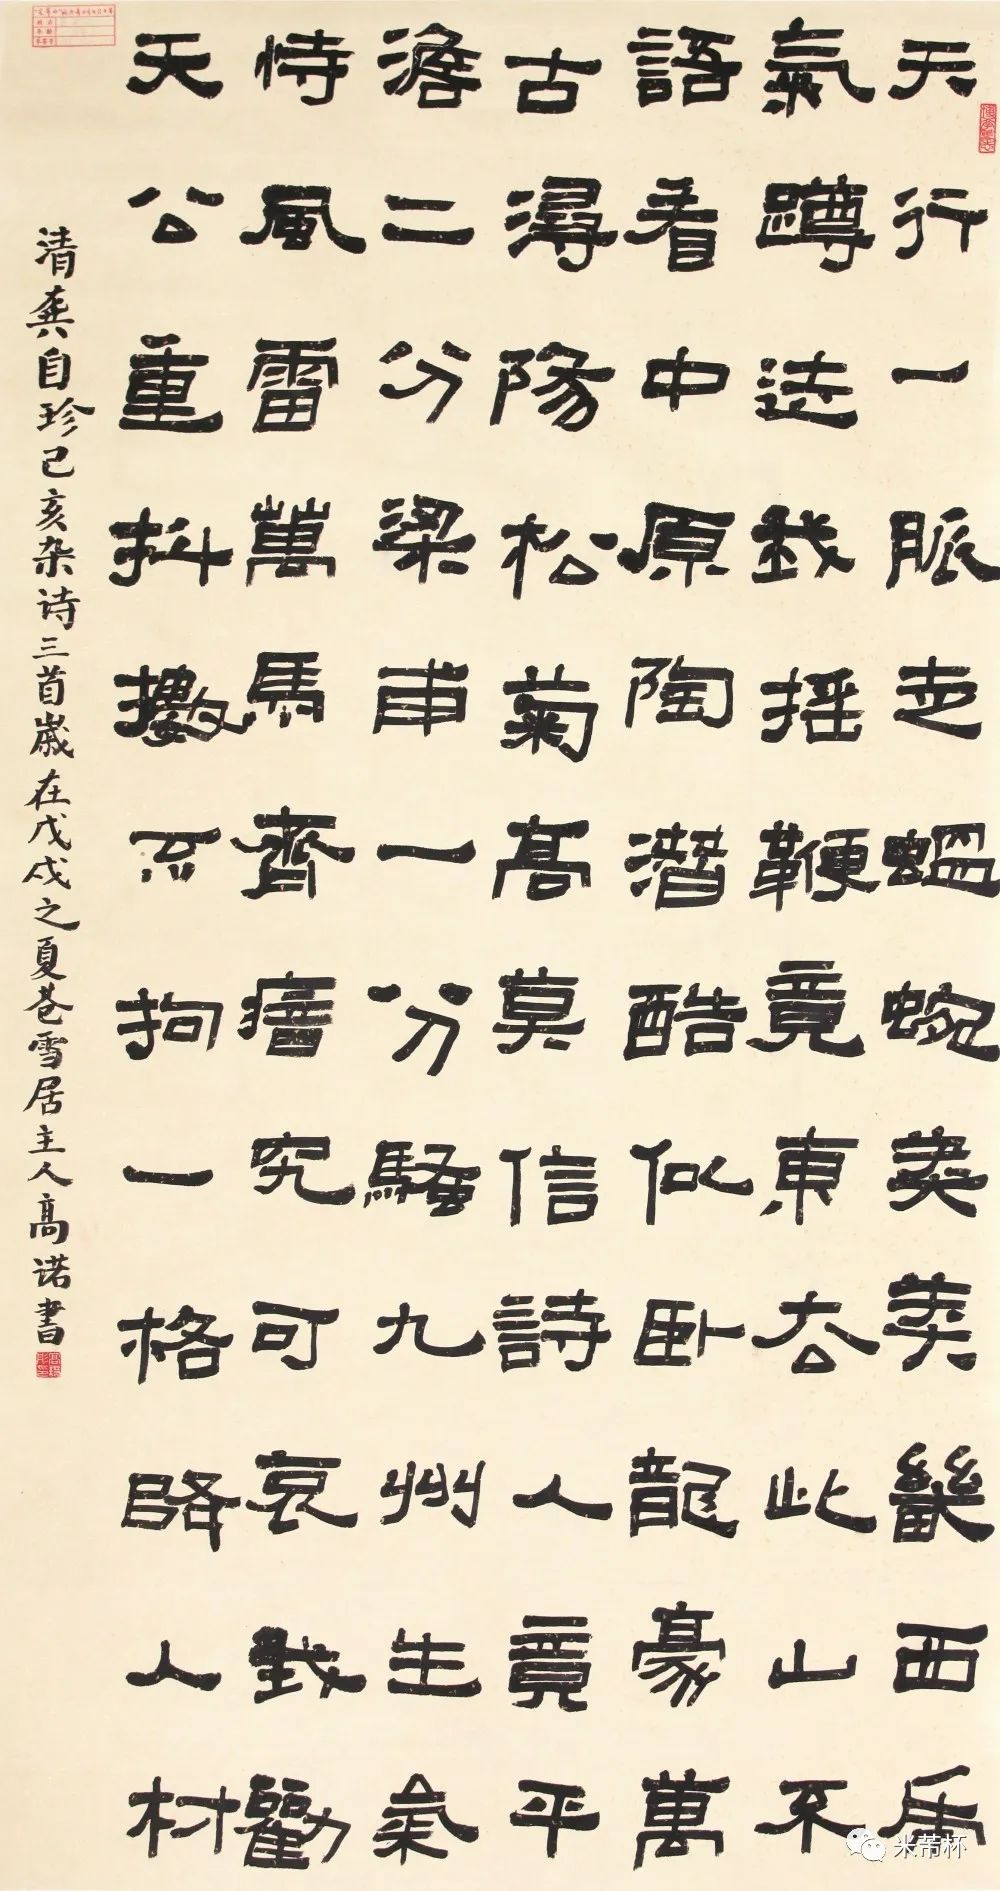 天行一脈走蝹蜿莽莽畿西虎
氣蹲送我摇鞭竟東去此山不
語看中原陶潛酷似卧龍豪萬
古潯陽松菊高莫信詩人竟平
澹二分梁甫一分騷九州生氣
恃風雷萬馬齊瘖究可哀我勸
天公重抖擻不拘一格降人材
清龚自珍己亥杂诗三首歲在戊戌之夏苍雪居主人高诺書
米芾杯